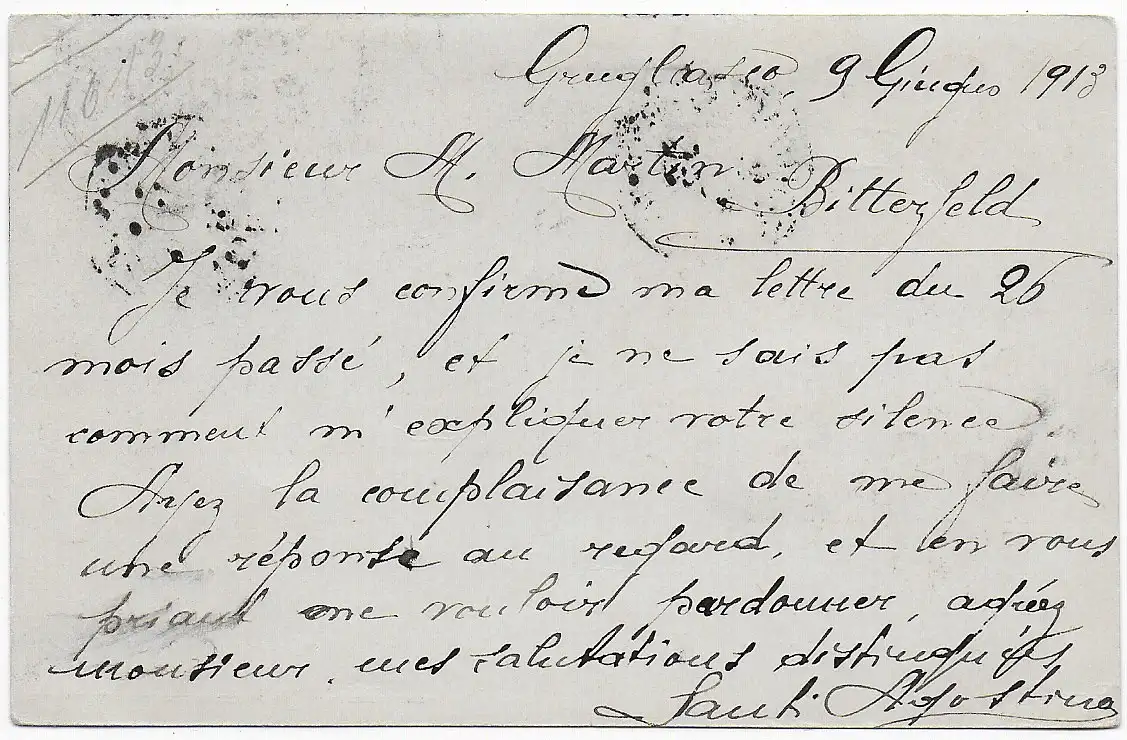 Grugliasco, 9 Giugno 1913
116113
Monsieur A. Martin Bitterfeld
Je vous confirme ma lettre du 26
mois passé, et je ne sais pas
comment m'expliquer votre silence.
Ayez la complaisance de me faire
une réponse au regard, et en vous
priant me vouloir pardonner, agréez
monsieur, mes salutations distinguées
Santi Agostino